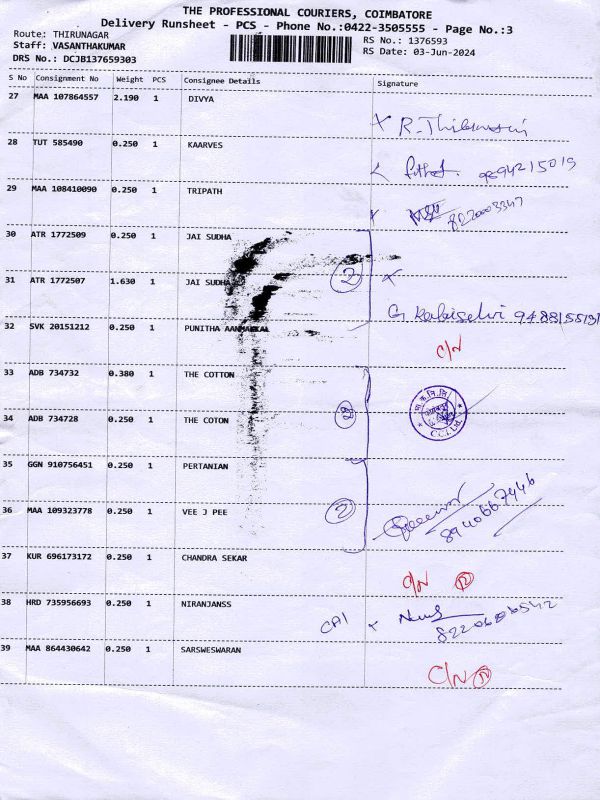 THE PROFESSIONAL COURIERS, COIMBATORE
Delivery Runsheet - PCS - Phone No.:0422-3505555 - Page No.:3
Route: THIRUNAGAR
RS No.: 1376593
Staff: VASANTHAKUMAR
RS Date: 03-Jun-2024
DRS No.: DCJB137659303
S No Consignment No Weight PCS Consignee Details Signature
27 MAA 107864557 2.190 1 DIVYA
28 TUT 585490 0.250 1 KAARVES
9894215019
29 MAA 108410090 0.250 1 TRIPATH
8220003347
30 ATR 1772509 0.250 1 JAI SUDHA
2
31 ATR 1772507 1.630 1 JAI SUDHA
G Kalaiselvi
32 SVK 20151212 0.250 1 PUNITHA
C/N
33 ADB 734732 0.380 1 THE COTTON
34 ADB 734728 0.250 1 THE COTON
35 GGN 910756451 0.250 1 PERTANIAN
36 MAA 109323778 0.250 1 VEE J PEE
2
8940667446
37 KUR 696173172 0.250 1 CHANDRA SEKAR
C/N
38 HRD 735956693 0.250 1 NIRANJANSS
39 MAA 864430642 0.250 1 SARSWESWARAN
C/N